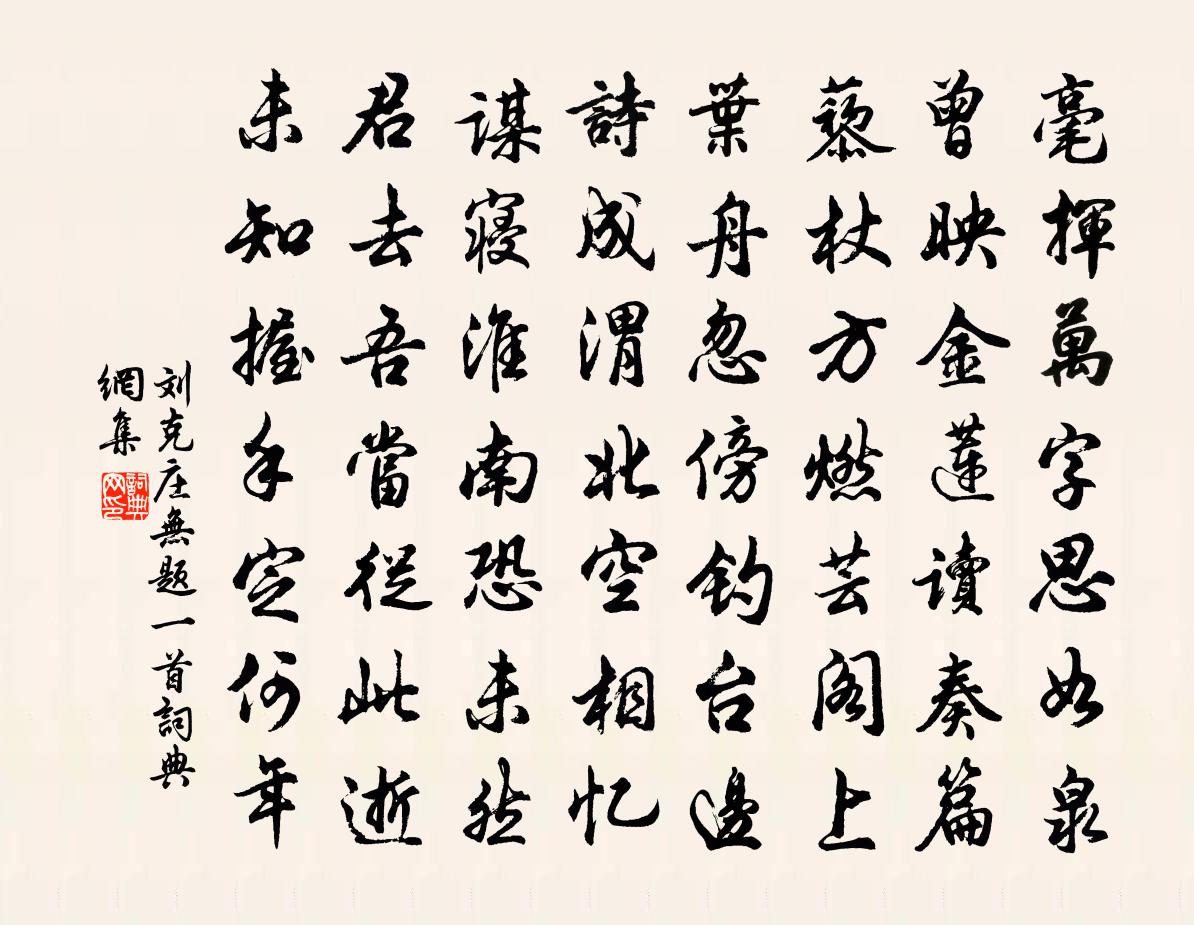 毫揮萬字思如泉
曾映金蓮讀奏篇
藜杖方燃芸阁上
葉舟忽傍釣台邊
詩成渭北空相忆
謀寝淮南恐未然
君去吾當從此逝
未知握手定何年
刘克庄無題一首詞典
網集
詞典网印